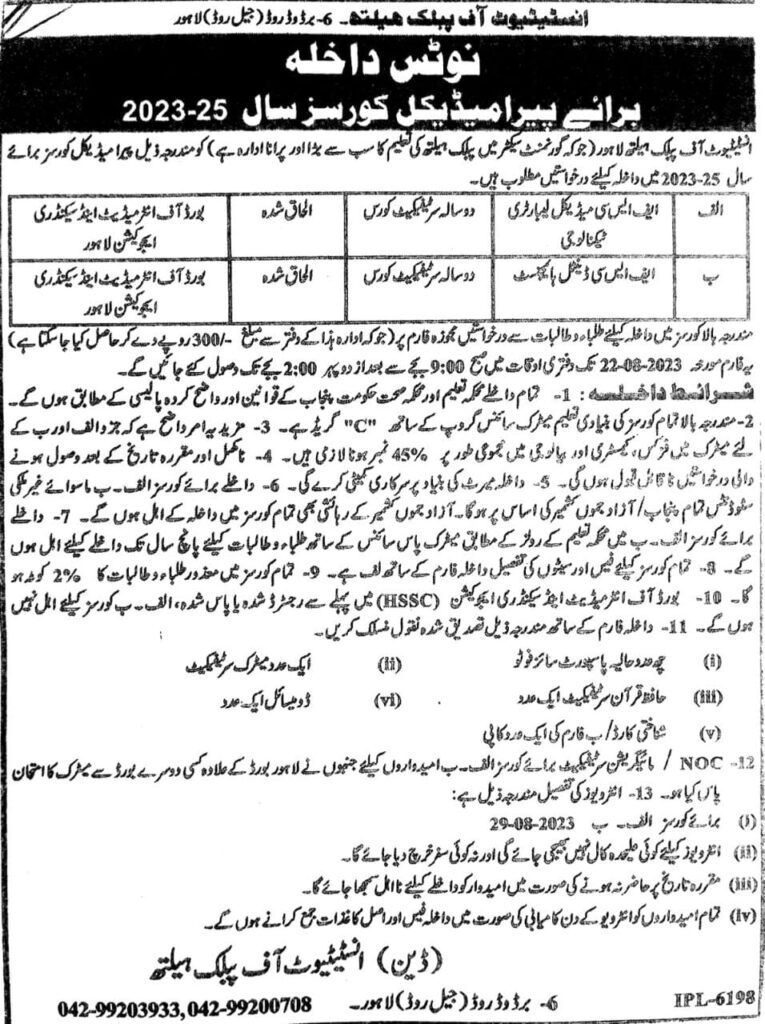 انسٹیٹیوٹ آف پبلک ہیلتھ۔ 6- برڈوڈ روڈ (جیل روڈ) لاہور
نوٹس داخلہ
برائے پیرامیڈیکل کورسز سال 25-2023
انسٹیٹیوٹ آف پبلک ہیلتھ لاہور (جو کہ گورنمنٹ سیکٹر میں پبلک ہیلتھ کی تعلیم کا سب سے بڑا اور پرانا ادارہ ہے) کو مندرجہ ذیل پیرامیڈیکل کورسز برائے
سال 25-2023 میں داخلہ کیلئے درخواستیں مطلوب ہیں۔
الف | ایف ایس سی میڈیکل لیبارٹری ٹیکنالوجی | دو سالہ سرٹیفکیٹ کورس | الحاق شدہ | بورڈ آف انٹرمیڈیٹ اینڈ سیکنڈری ایجوکیشن لاہور
ب | ایف ایس سی ڈینٹل ہائیجینسٹ | دو سالہ سرٹیفکیٹ کورس | الحاق شدہ | بورڈ آف انٹرمیڈیٹ اینڈ سیکنڈری ایجوکیشن لاہور
مندرجہ بالا کورسز میں داخلہ کیلئے طلباء و طالبات سے درخواستیں مجوزہ فارم پر (جو کہ ادارہ ہذا کے دفتر سے مبلغ -/300 روپے دے کر حاصل کیا جا سکتا ہے)
یہ فارم مورخہ 22-08-2023 تک دفتری اوقات میں صبح 9:00 بجے سے بعد از دوپہر 2:00 بجے تک وصول کئے جائیں گے۔
شرائط داخلہ: 1- تمام داخلے محکمہ تعلیم اور محکمہ صحت حکومت پنجاب کے قوانین اور واضح کردہ پالیسی کے مطابق ہوں گے۔
2- مندرجہ بالا تمام کورسز کی بنیادی تعلیم میٹرک سائنس گروپ کے ساتھ "C" گریڈ ہے۔ 3- مزید یہ امر واضح ہے کہ جزو الف اور ب کے
لئے میٹرک میں فزکس، کیمسٹری اور بیالوجی میں مجموعی طور پر 45% نمبر ہونا لازمی ہیں۔ 4- نامکمل اور مقررہ تاریخ کے بعد وصول ہونے
والی درخواستیں نا قابل قبول ہوں گی۔ 5- داخلہ میرٹ کی بنیاد پر سرکاری کمیٹی کرے گی۔ 6- داخلے برائے کورسز الف۔ ب ماسوائے غیر ملکی
سٹوڈنٹس تمام پنجاب/ آزاد جموں کشمیر کی اساس پر ہوگا۔ آزاد جموں کشمیر کے رہائشی بھی تمام کورسز میں داخلہ کے اہل ہوں گے۔ 7- داخلے
برائے کورسز الف۔ ب میں محکمہ تعلیم کے رولز کے مطابق میٹرک پاس سائنس کے ساتھ طلباء و طالبات کیلئے پانچ سال تک داخلے کیلئے اہل ہوں
گے۔ 8- تمام کورسز کیلئے فیس اور سیٹوں کی تفصیل داخلہ فارم کے ساتھ لف ہے۔ 9- تمام کورسز میں معذور طلباء و طالبات کا 2% کوٹہ ہو
گا۔ 10- بورڈ آف انٹرمیڈیٹ اینڈ سیکنڈری ایجوکیشن (HSSC) میں پہلے سے رجسٹرڈ شدہ یا پاس شدہ، الف۔ ب کورسز کیلئے اہل نہیں
ہوں گے۔ 11- داخلہ فارم کے ساتھ مندرجہ ذیل تصدیق شدہ نقول منسلک کریں۔
(i) چھ عدد حالیہ پاسپورٹ سائز فوٹو (ii) ایک عدد میٹرک سرٹیفکیٹ
(iii) حافظ قرآن سرٹیفکیٹ ایک عدد (vi) ڈومیسائل ایک عدد
(v) شناختی کارڈ/ ب فارم کی ایک عدد کاپی
12- NOC / مائیگریشن سرٹیفکیٹ برائے کورسز الف۔ ب امیدواروں کیلئے جنہوں نے لاہور بورڈ کے علاوہ کسی دوسرے بورڈ سے میٹرک کا امتحان
پاس کیا ہو۔ 13- انٹرویوز کی تفصیل مندرجہ ذیل ہے:
(i) برائے کورسز الف۔ ب 29-08-2023
(ii) انٹرویوز کیلئے کوئی علیحدہ کال نہیں بھیجی جائے گی اور نہ کوئی سفر خرچ دیا جائے گا۔
(iii) مقررہ تاریخ پر حاضر نہ ہونے کی صورت میں امیدوار کو داخلے کیلئے نا اہل سمجھا جائے گا۔
(iv) تمام امیدواروں کو انٹرویو کے دن کامیابی کی صورت میں داخلہ فیس اور اصل کاغذات جمع کرانے ہوں گے۔
(ڈین) انسٹیٹیوٹ آف پبلک ہیلتھ
IPL-6198 6- برڈوڈ روڈ (جیل روڈ) لاہور۔ 042-99203933, 042-99200708